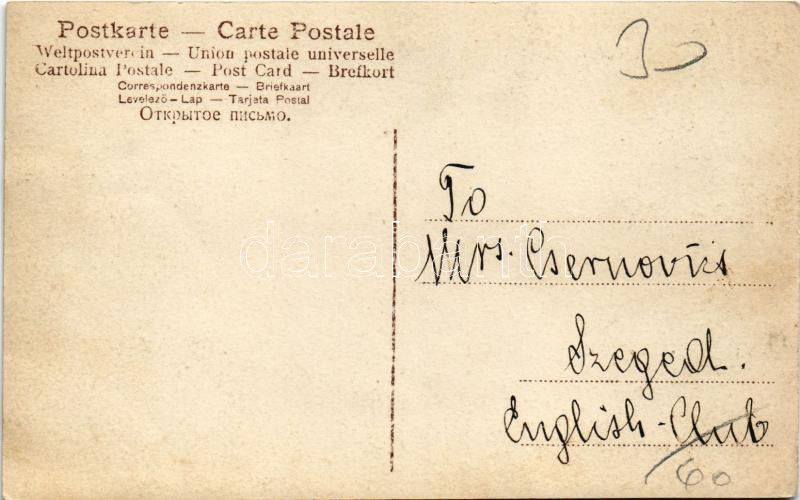 Postkarte — Carte Postale
Weltpostverein — Union postale universelle
Cartolina Postale — Post Card — Brefkort
Correspondenzkarte — Briefkaart
Levelező-Lap — Tarjeta Postal
Открытое письмо.
30
To
Mrs. Csernovits
Szeged.
English-Club
60
darabanth